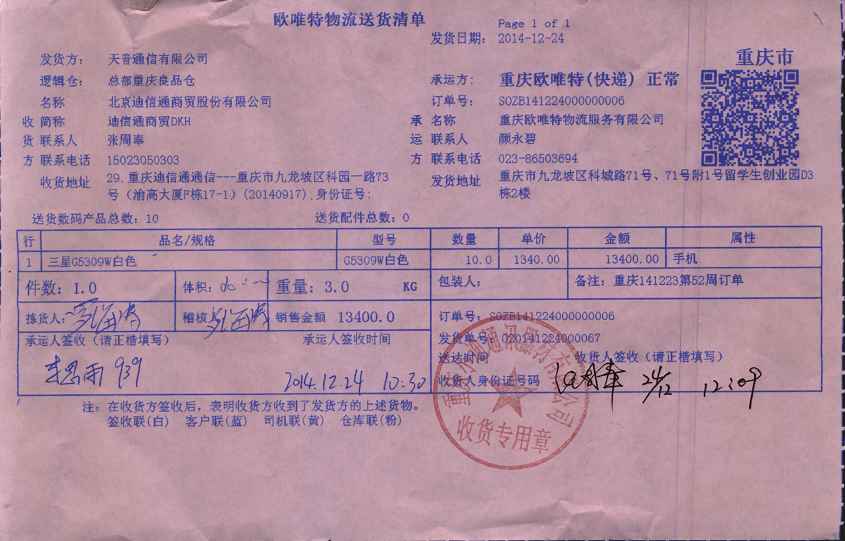 欧唯特物流送货清单
Page 1 of 1
发货日期: 2014-12-24
重庆市
发货方: 天音通信有限公司
逻辑仓: 总部重庆良品仓
承运方: 重庆欧唯特(快递) 正常
名称 北京迪信通商贸股份有限公司
订单号: SOZB141224000000006
收 简称 迪信通商贸DKH
承 名称 重庆欧唯特物流服务有限公司
货 联系人 张周奉
运 联系人 颜永碧
方 联系电话 15023050303
方 联系电话 023-86503694
收货地址 29.重庆迪信通通信---重庆市九龙坡区科园一路73
号(渝高大厦F栋17-1)(20140917),身份证号:
发货地址 重庆市九龙坡区科城路71号、71号附1号留学生创业园D3
栋2楼
送货数码产品总数: 10 送货配件总数: 0
行 品名/规格 型号 数量 单价 金额 属性
1 三星G5309W白色 G5309W白色 10.0 1340.00 13400.00 手机
件数: 1.0 体积: 重量: 3.0 KG 包装人: 备注: 重庆141223第52周订单
拣货人: 稽核 销售金额 13400.0 订单号: SOZB141224000000006
发货单号: 020141224000067
承运人签收(请正楷填写) 承运人签收时间 送达时间 收货人签收(请正楷填写)
939 2014.12.24 10:30 收货人身份证号码 24/12 12:09
收货专用章
注: 在收货方签收后,表明收货方收到了发货方的上述货物。
签收联(白) 客户联(蓝) 司机联(黄) 仓库联(粉)